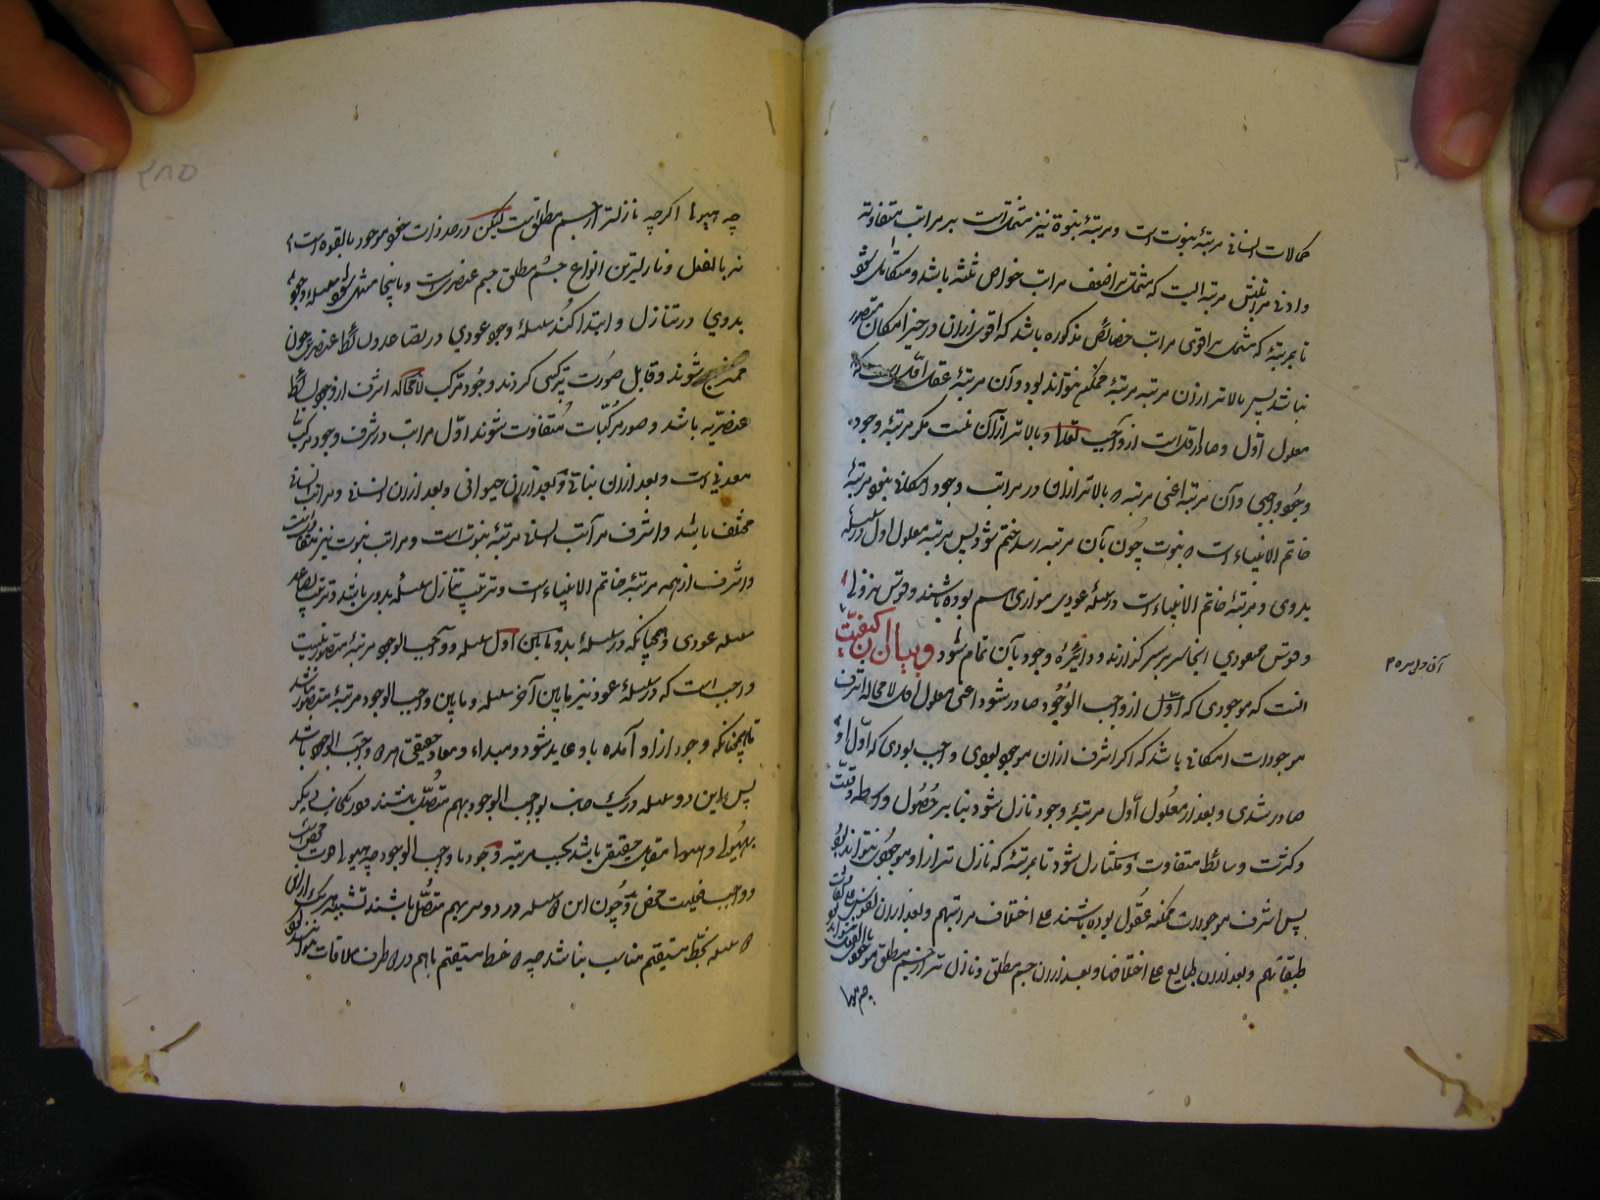 کمالات انسانی مرتبهٔ نبوت است و مرتبهٔ نبوة نیز مشتمل است بر مراتب متفاوته
و ادنی مراتبش مرتبه ایست که مشتمل بر اضعف مراتب خواص ثلثه باشد و متکامل شود
تا بمرتبهٔ که مشتمل بر اقوی مراتب خصائص مذکوره باشد که اقوی ازان در حیز امکان متصور
نباشد پس بالاتر ازان مرتبه مرتبهٔ ممکنی نتواند بود و آن مرتبهٔ عقل اول است که
معلول اول و صادر اول است از واجب تعالی و بالاتر ازان نیست مگر مرتبهٔ وجود
وجود واجبی و آن مرتبه اعنی مرتبه که بالاتر ازان در مراتب وجود امکانی نبود مرتبهٔ
خاتم الانبیاء است که نبوت چون بآن مرتبه رسد ختم شود پس مرتبه معلول اول در سلسلهٔ
بدوی و مرتبهٔ خاتم الانبیاء است در سلسلهٔ عودی موازی هم بوده باشند و قوس نزولی
و قوس صعودی انجا سر بر سر گذارند و دایرهٔ وجود بآن تمام شود و بیان این کیفیت
انست که موجودی که اول از واجب الوجود صادر شود اعنی معلول اول لا محاله اشرف
موجودات امکانی باشد که اگر اشرف ازان موجود بودی واجب بودی که اول او
صادر شدی و بعد از معلول اول مرتبهٔ وجود نازل شود بنا بر حصول واسطه و قلت
و کثرت وسائط متفاوت و متنازل شود تا بمرتبهٔ که نازل تر ازاو موجودی نتواند بود
پس اشرف موجودات ممکنه عقول بوده باشند علی اختلاف مراتبهم و بعد ازان نفوس علی تفاوت
طبقاتهم و بعد ازان طبایع علی اختلافها و بعد ازان جسم مطلق و نازل تر از جسم مطلق موجودی بالفعل نتواند بود
چه هیولی
چه هیولی اگرچه نازلتر از جسم مطلق است لیکن در حد ذات خود موجود بالقوه است
نه بالفعل و نازلترین انواع جسم مطلق جسم عنصریست و باینجا منتهی شود سلسلهٔ وجود
بدوی در تنازل و ابتدا کند سلسلهٔ وجود عودی در تصاعد و بسائط عنصری چون
ممتزج شوند و قابل صورت ترکیبی گردند وجود مرکب لا محاله اشرف از وجود بسائط
عنصریه باشد و صور مرکبات متفاوت شوند اول مراتب در شرف وجود مرکب
معدنی است و بعد ازان نباتی و بعد ازان حیوانی و بعد ازان انسانی و مراتب انسانی
مختلف باشد و اشرف مراتب انسانی مرتبهٔ نبوت است و مراتب نبوت نیز متفاوتست
و اشرف از همه مرتبهٔ خاتم الانبیاء است و ترتیب تنازل سلسلهٔ بدوی باشد و ترتیب تصاعد
سلسله عودی و همچنانکه در سلسلهٔ بدو مابین اول سلسله و واجب الوجود مرتبهٔ متصور نیست
واجب است که در سلسلهٔ عود نیز مابین آخر سلسله و مابین واجب الوجود مرتبهٔ متصور نباشد
تا همچنانکه وجود ازاو آمده باو عاید شود و مبداء و معاد حقیقی همه واجب الوجود باشد
پس این دو سلسله در یک جانب بواجب الوجود بهم متصل باشند و در جانب دیگر
بهیولی و هیولی مقابل حقیقی باشد بحسب مرتبه وجود با واجب الوجود چه هیولی قوت محض است
و واجب فعلیت محض و چون این سلسله در دو سر بهم متصل باشند تشبیه هر یک ازاین
سلسله بخط مستقیم مناسب نباشد چه خط مستقیم باهم در طرف ملاقات نتوانند کرد
۲۸۵